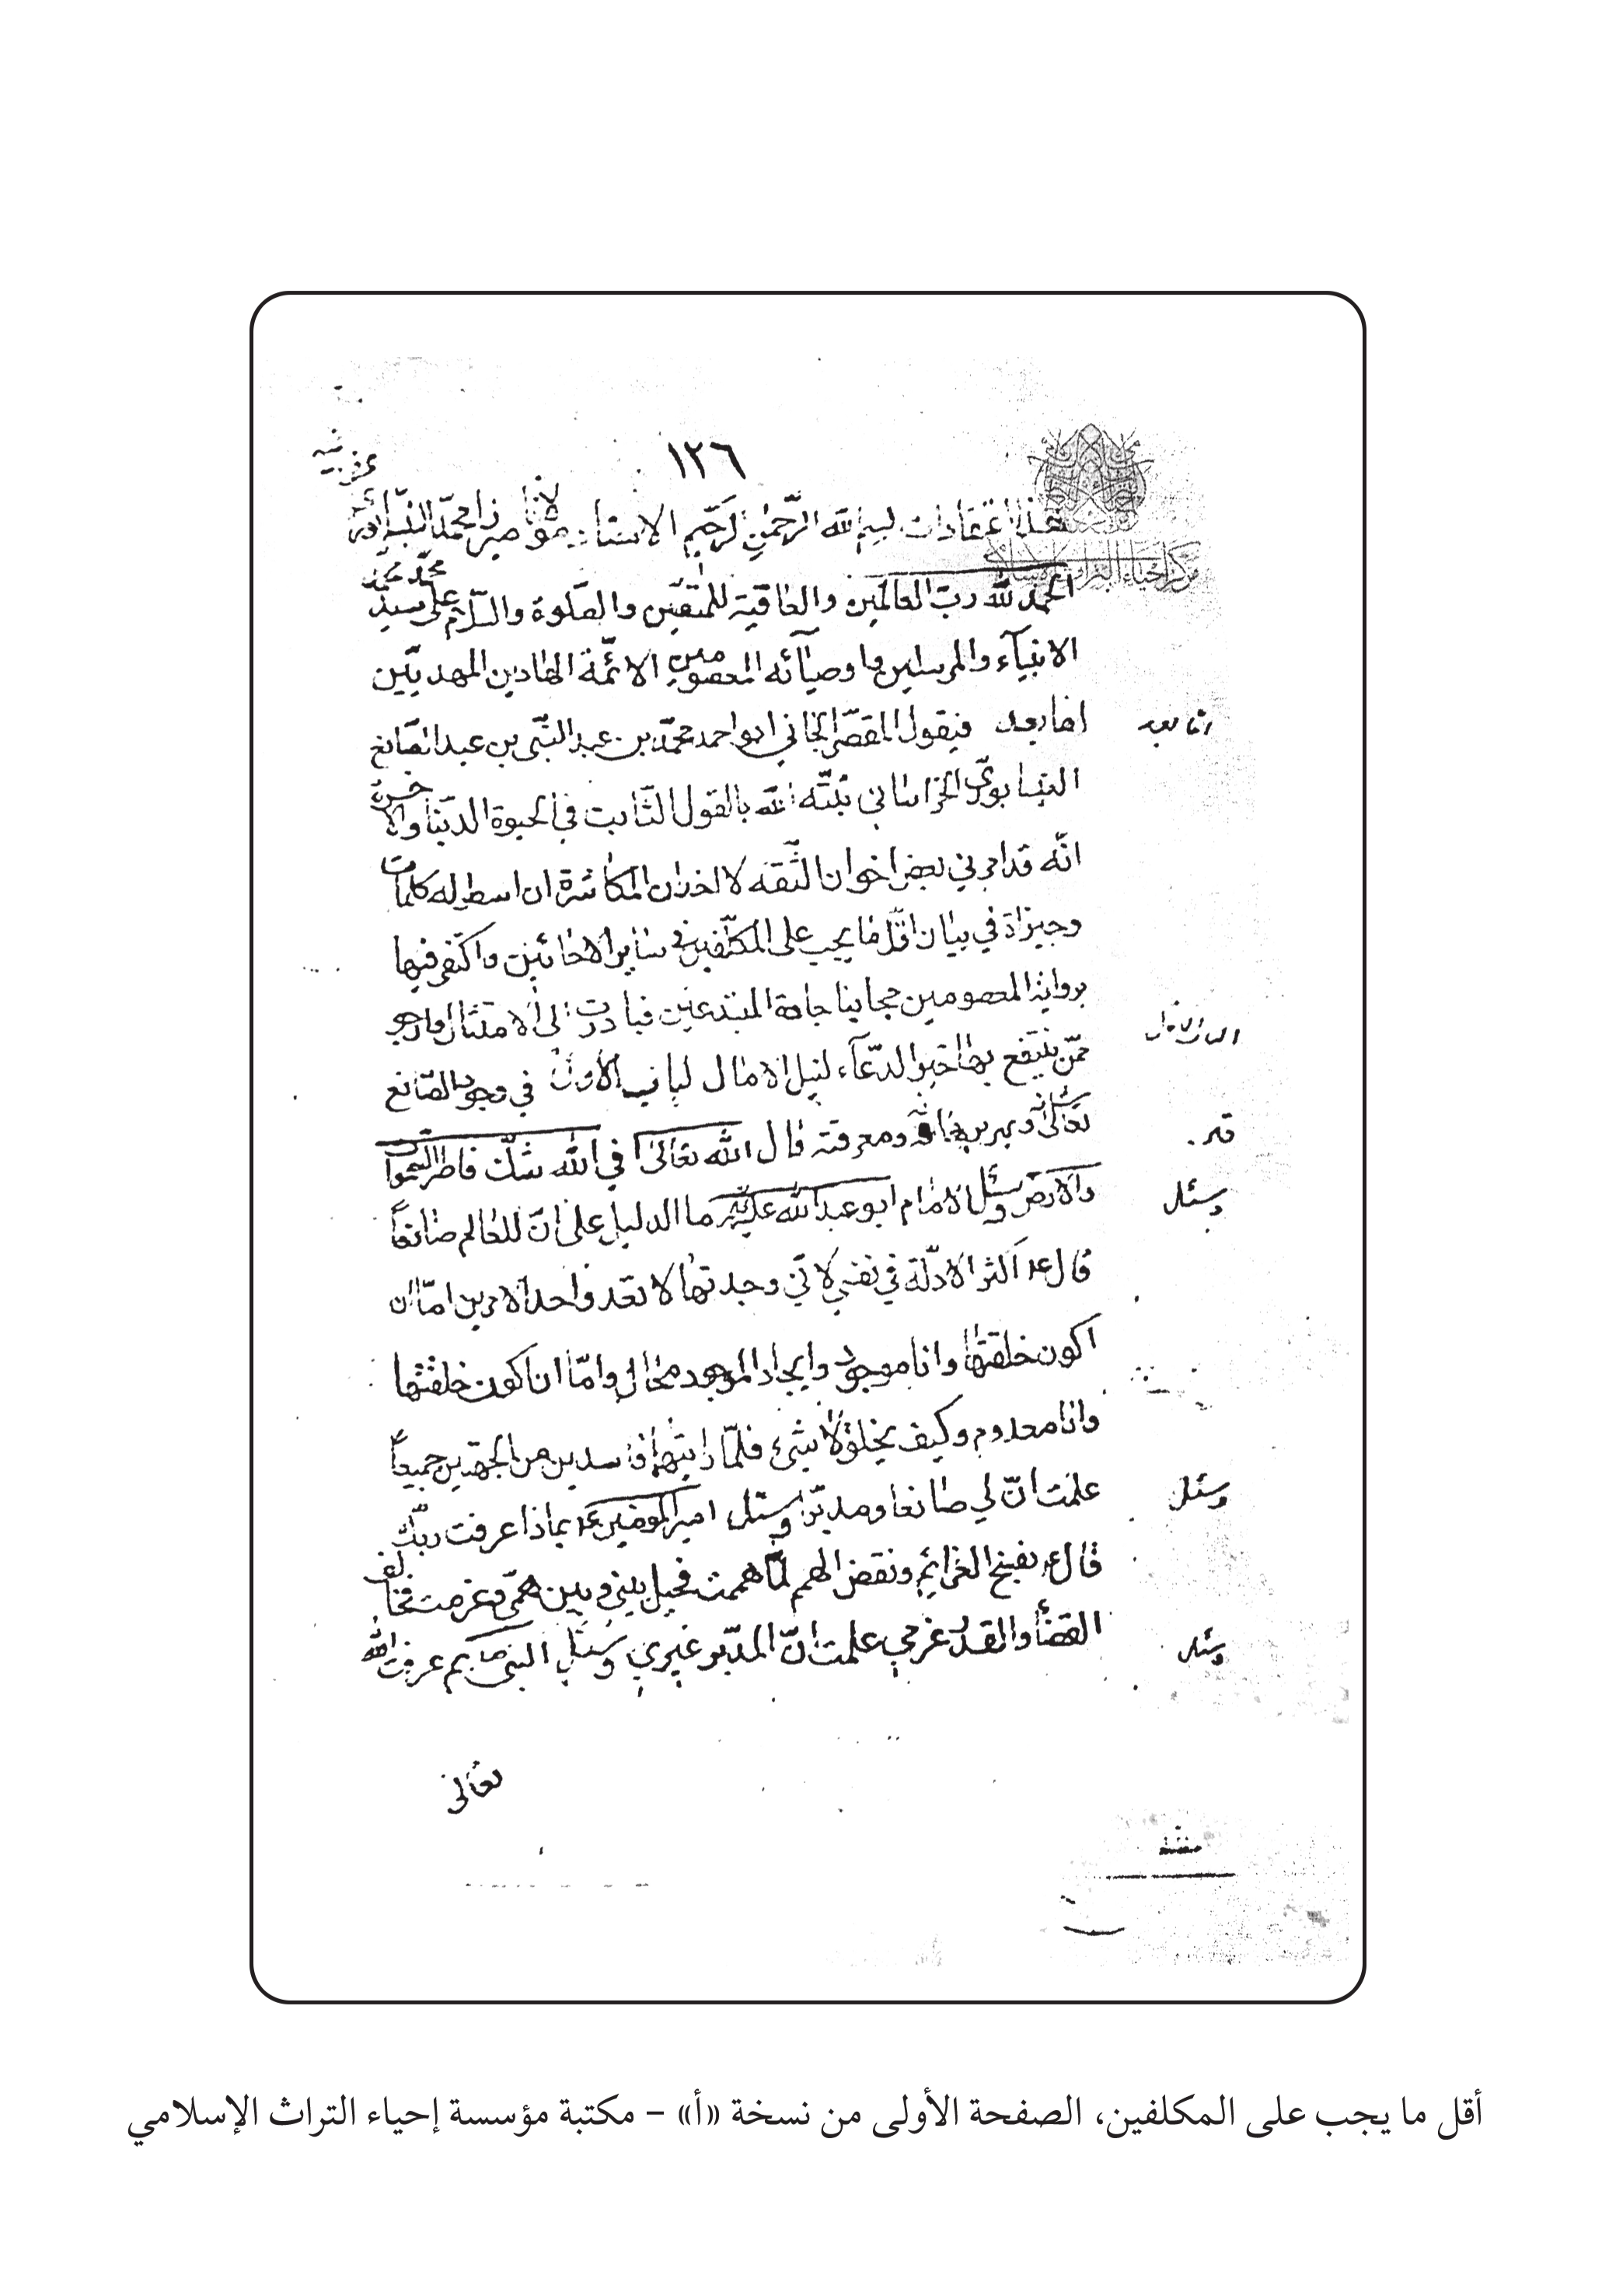 ١٢٦
هذا اعتقادات بسم الله الرحمن الرحيم الاستاد مولانا ميرزا محمد النيسابوري
الحمد لله ربّ العالمين والعاقبة للمتقين والصلوة والسلام على سيد محمد
الانبياء والمرسلين واوصيائه المعصومين الائمّة الهادين المهديّين
امّا بعد
امّا بعد فيقول المقصّر الجاني ابو احمد محمّد بن عبد النبّي بن عبد الصانع
النيسابوري الخراساني ثبّته الله بالقول الثابت في الحيوة الدنيا والآخرة
انّه قد امرني بعض اخوان الثقه لا اخدان المكاشرة ان اسطر له كلمات
وجيزة في بيان اقلّ ما يجب على المكلّفين في ساير الاحائين واكتفي فيها
برواية المعصومين مجانبا جادة المبتدعين فبادرت الى الامتثال وارجو
الباب الاول
ممّن ينتفع بها خير الدعاء لنيل الامال الباب الاول في وجود الصانع
تعالى شانه و ومعرفته قال الله تعالى افي الله شكّ فاطر السموات
والارض وسئل الامام ابو عبد الله عليه ما الدليل على انّ للعالم صانعاً
وسئل
قال ع اكثر الادلّة في نفسي لاني وجدتها لا تعد واحد الامرين امّا ان
اكون خلقتها وانا موجود وايجاد الموجود محال وامّا ان اكون خلقتها
وانا معدوم وكيف يخلق لا شيئ فلمّا رايتهما فاسدين من الجهتين جميعاً
علمت انّ لي صانعا ومدبّرا وسئل امير المومنين ع بماذا عرفت ربّك
وسئل
قال ع بفسخ العزائم ونقض الهمم لمّا هممت فحيل بيني وبين همّي وعزمت فخالف
القضاء والقدر عزمي علمت انّ المدبّر غيري وسئل النبي ص بم عرفت الله
وسئل
تعالى
أقل ما يجب على المكلفين، الصفحة الأولى من نسخة «أ» – مكتبة مؤسسة إحياء التراث الإسلامي